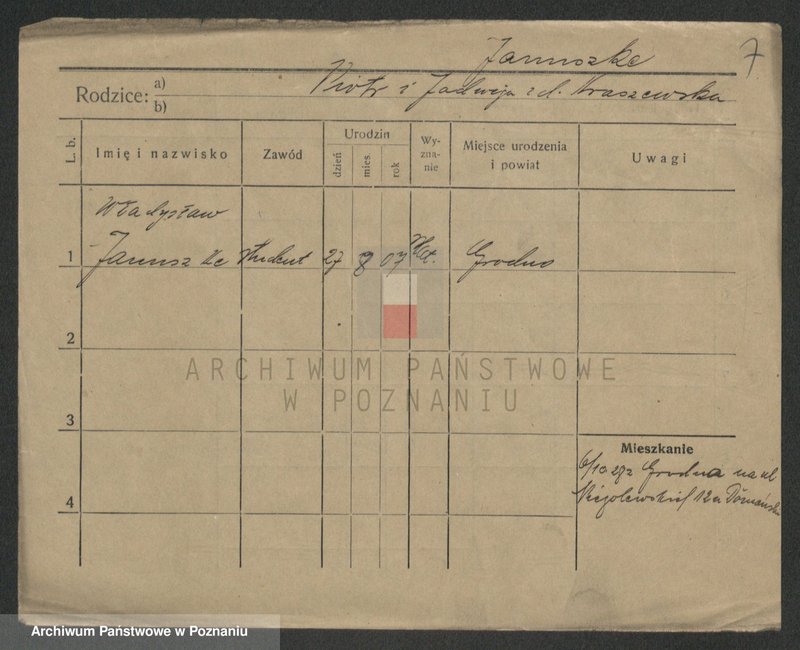 Januszke
7
Rodzice: a) b)
Piotr i Jadwiga z d. Kraszewska
L. b.
Imię i nazwisko
Zawód
Urodzin
dzień
mies.
rok
Wy-
zna-
nie
Miejsce urodzenia
i powiat
Uwagi
Władysław
1 Januszke student 27 8 07 Grodno
2
3
4
Mieszkanie
6/10 28 z Grodna na ul
Niegolewskich 12a
ARCHIWUM PAŃSTWOWE
W POZNANIU
Archiwum Państwowe w Poznaniu